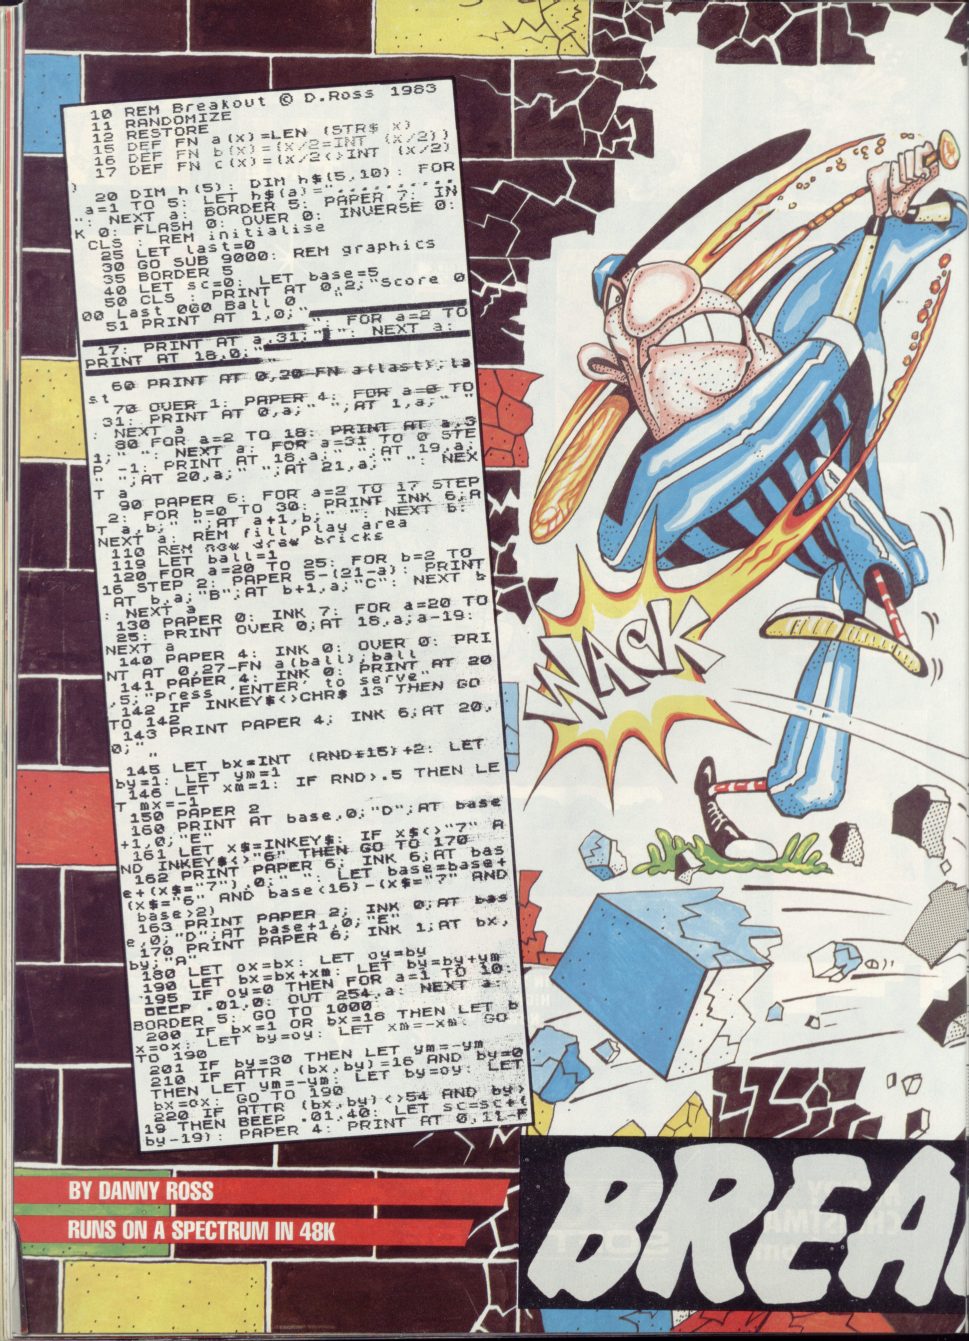 10 REM Breakout © D.Ross 1983
11 RANDOMIZE
12 RESTORE
15 DEF FN a(x)=LEN (STR$ x)
16 DEF FN b(x)=(x/2=INT (x/2))
17 DEF FN c(x)=(x/2<>INT (x/2)
)
20 DIM h(5): DIM h$(5,10): FOR
a=1 TO 5: LET h$(a)="..........
": NEXT a: BORDER 5: PAPER 7: IN
K 0: FLASH 0: OVER 0: INVERSE 0:
CLS : REM initialise
25 LET last=0
30 GO SUB 9000: REM graphics
35 BORDER 5
40 LET sc=0: LET base=5
50 CLS : PRINT AT 0,2;"Score 0
00 Last 000 Ball 0 "
51 PRINT AT 1,0;"
"; FOR a=2 TO
17: PRINT AT a,31;" ": NEXT a:
PRINT AT 18,0;"
60 PRINT AT 0,20-FN a(last);la
st
70 OVER 1: PAPER 4: FOR a=0 TO
31: PRINT AT 0,a;" ";AT 1,a;" "
: NEXT a
80 FOR a=2 TO 18: PRINT AT a,3
1;" ": NEXT a: FOR a=31 TO 0 STE
P -1: PRINT AT 18,a;" ";AT 19,a;
" ";AT 20,a;" ";AT 21,a;" ": NEX
T a
90 PAPER 6: FOR a=2 TO 17 STEP
2: FOR b=0 TO 30: PRINT INK 6;A
T a,b;" ";AT a+1,b;" ": NEXT b:
NEXT a: REM fill play area
110 REM now draw bricks
119 LET ball=1
120 FOR a=20 TO 25: FOR b=2 TO
16 STEP 2: PAPER 5-(21-a): PRINT
AT b,a;"B";AT b+1,a;"C": NEXT b
: NEXT a
130 PAPER 0: INK 7: FOR a=20 TO
25: PRINT OVER 0;AT 18,a;a-19:
NEXT a
140 PAPER 4: INK 0: OVER 0: PRI
NT AT 0,27-FN a(ball);ball
141 PAPER 4: INK 0: PRINT AT 20
,5;"Press 'ENTER' to serve"
142 IF INKEY$<>CHR$ 13 THEN GO
TO 142
143 PRINT PAPER 4; INK 6;AT 20,
0;"
"
145 LET bx=INT (RND*15)+2: LET
by=1: LET ym=1
146 LET xm=1: IF RND>.5 THEN LE
T mx=-1
150 PAPER 2
160 PRINT AT base,0;"D";AT base
+1,0;"E"
161 LET x$=INKEY$: IF x$<>"7" A
ND INKEY$<>"6" THEN GO TO 170
162 PRINT PAPER 6; INK 6;AT bas
e+(x$="7"),0;" ": LET base=base+
(x$="6" AND base<16)-(x$="7" AND
base>2)
163 PRINT PAPER 2; INK 0;AT bas
e,0;"D";AT base+1,0;"E"
170 PRINT PAPER 6; INK 1;AT bx,
by;"A"
180 LET ox=bx: LET oy=by
190 LET bx=bx+xm: LET by=by+ym
195 IF oy=0 THEN FOR a=1 TO 10:
BEEP .01,0: OUT 254,a: NEXT a:
BORDER 5: GO TO 1000
200 IF bx=1 OR bx=18 THEN LET b
x=ox: LET by=oy: LET xm=-xm: GO
TO 190
201 IF by=30 THEN LET ym=-ym
210 IF ATTR (bx,by)=16 AND by=0
THEN LET ym=-ym: LET by=oy: LET
bx=ox: GO TO 190
220 IF ATTR (bx,by)<>54 AND by>
19 THEN BEEP .01,40: LET sc=sc+(
by-19): PAPER 4: PRINT AT 0,11-F
WACK
BY DANNY ROSS
RUNS ON A SPECTRUM IN 48K
BREA